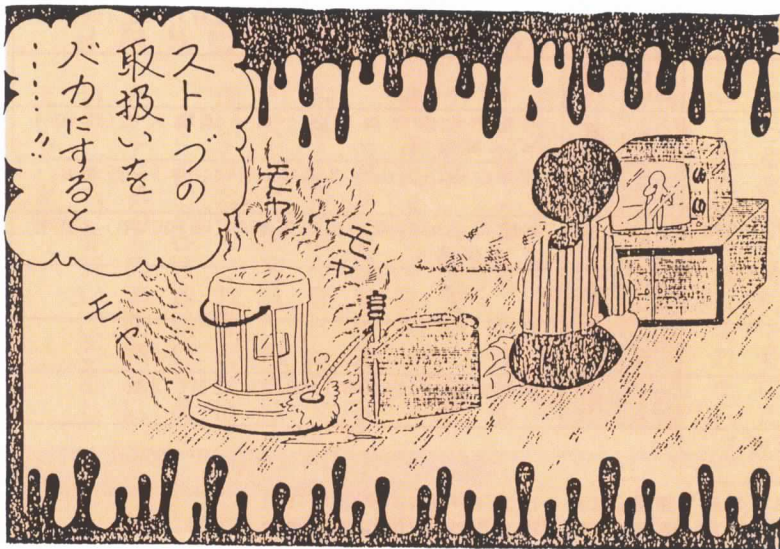 ストーブの
取扱いを
バカにすると
……!!
モヤ
モヤ
モヤ